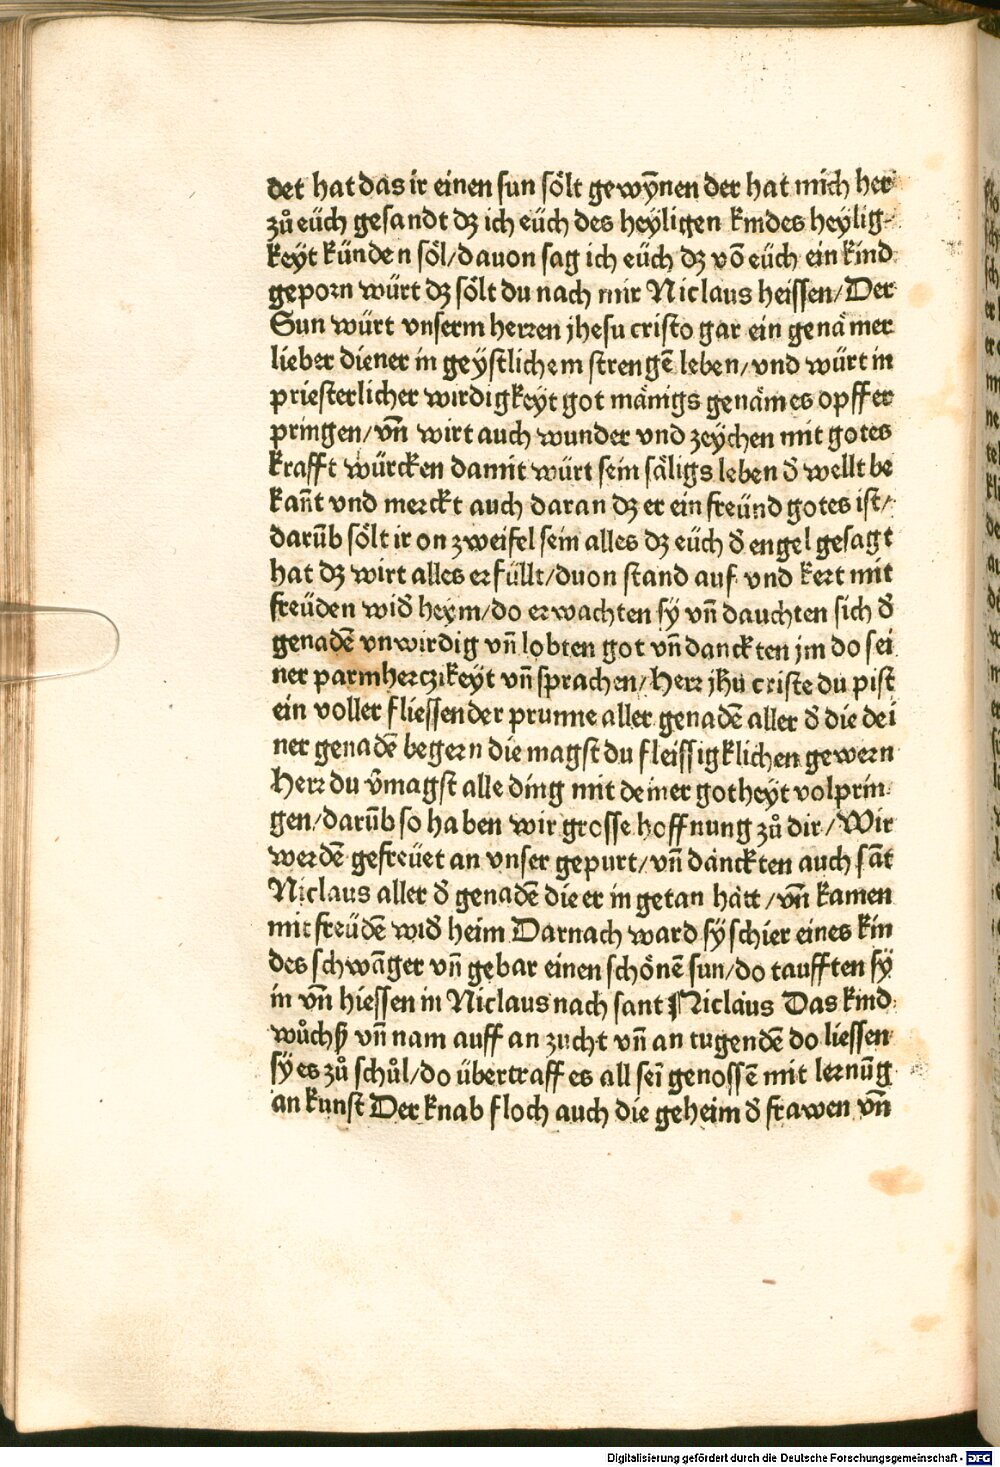 det hat das ir einen sun sölt gewÿnen der hat mich her
zů eüch gesandt dz ich eüch des heyligen kindes heylig-
keyt künden söl/dauon sag ich eüch dz võ eüch ein kind
geporn würt dz sölt du nach mir Niclaus heissen/Der
Sun würt vnserm herren jhesu cristo gar ein genämer
lieber diener in geÿstlichem strengẽ leben/vnd würt in
priesterlicher wirdigkeyt got mänigs genämes opffer
pringen/vñ wirt auch wunder vnd zeÿchen mit gotes
krafft würcken damit würt sein säligs leben đ wellt be
kañt vnd merckt auch daran dz er ein freünd gotes ist/
darũb sölt ir on zweifel sein alles dz eüch đ engel gesagt
hat dz wirt alles erfüllt/duon stand auf vnd kert mit
freüden wiđ heym/do erwachten sÿ vñ dauchten sich đ
genadẽ vnwirdig vñ lobten got vñ danckten jm do sei
ner parmherczikeyt vñ sprachen/Herr jhũ criste du pist
ein voller fliessender prunne aller genadẽ aller đ die dei
ner genadẽ begern die magst du fleissigklichen gewern
Herr du v̄magst alle ding mit deiner gotheyt volprin
gen/darũb so haben wir grosse hoffnung zů dir/Wir
werdẽ gefreüet an vnser gepurt/vñ danckten auch sãt
Niclaus aller đ genadẽ die er in getan hätt/vñ kamen
mit freüdẽ wiđ heim Darnach ward sÿ schier eines kin
des schwãger vñ gebar einen schönẽ sun/do taufften sÿ
in vñ hiessen in Niclaus nach sant Niclaus Das kind
wůchß vñ nam auff an zucht vñ an tugendẽ do liessen
sÿ es zů schůl/do übertraff es all sei genossẽ mit lernũg
an kunst Der knab floch auch die geheim đ frawen vñ
Digitalisierung gefördert durch die Deutsche Forschungsgemeinschaft - DFG